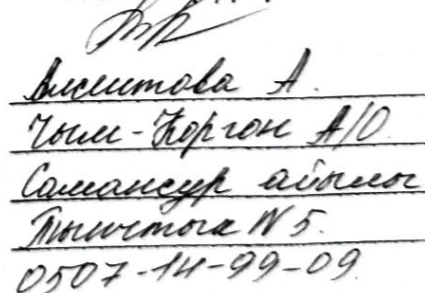 А.
Чым-Коргон А/О.
Самансур айылы
Тынчтык №5.
0507-14-99-09